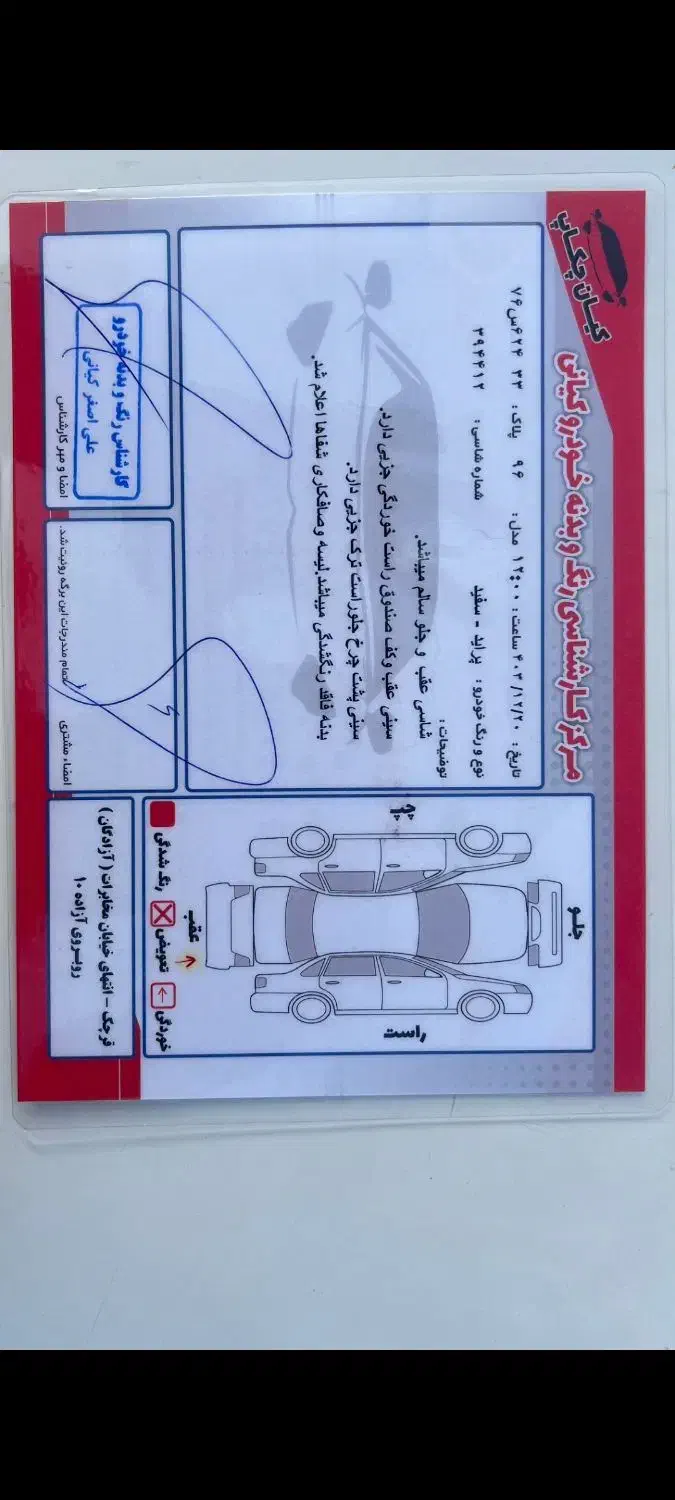 کیان چکاپ
مرکز کارشناسی رنگ و بدنه خودرو کیانی
تاریخ : ۴۰۳/۱۲/۲۰ ساعت : ۱۲:۰۰ مدل : ۹۶ پلاک : ۳۳ ۶۲۴س۷۶
نوع و رنگ خودرو : پراید - سفید شماره شاسی : ۳۹۴۴۱۲
توضیحات :
شاسی عقب و جلو سالم میباشد.
سینی عقب وکف صندوق راست خوردگی جزیی دارد.
سینی پشت چرخ جلوراست ترک جزیی دارد.
بدنه فاقد رنگشدگی میباشد.لیسه وصافکاری شفاها اعلام شد.
جلو
چپ
راست
عقب
رنگ شدگی
تعویض
خوردگی
تمام مندرجات این برگه رویت شد.
امضاء مشتری
کارشناس رنگ و بدنه خودرو
علی اصغر کیانی
امضا و مهر کارشناس
قرچک - انتهای خیابان مخابرات ( آزادگان )
روبروی آزاده ۱۰